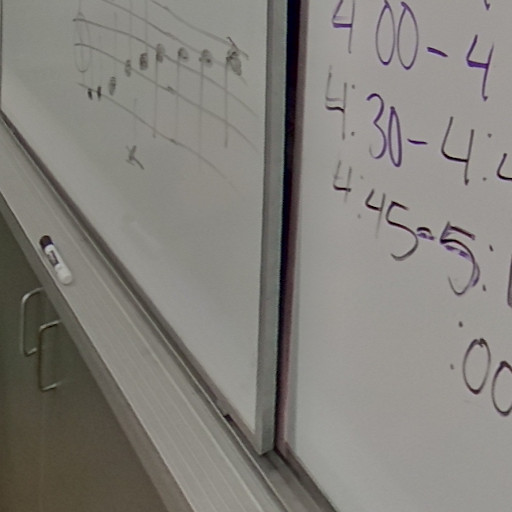 4 00 - 4
4:30 - 4:4
4:45 - 5:
:00